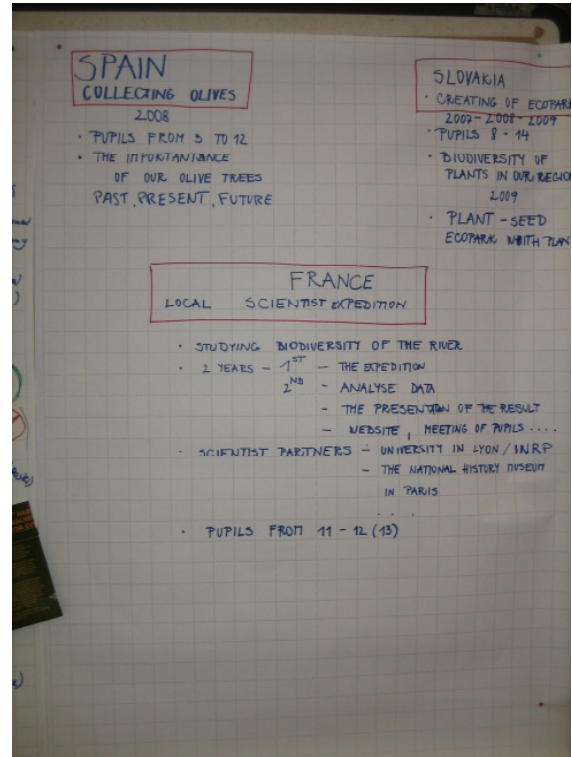 SPAIN
COLLECTING OLIVES
2008
· PUPILS FROM 3 TO 12
· THE IMPORTANTANCE
OF OUR OLIVE TREES
PAST, PRESENT, FUTURE
SLOVAKIA
· CREATING OF ECOPARK
2007-2008-2009
· PUPILS 8-14
· BIUDIVERSITY OF
PLANTS IN OUR REGION
2009
· PLANT-SEED
ECOPARK WITH
FRANCE
LOCAL SCIENTIST EXPEDITION
· STUDYING BIODIVERSITY OF THE RIVER
· 2 YEARS - 1ST - THE EXPEDITION
2ND - ANALYSE DATA
- THE PRESENTATION OF THE RESULT
- WEBSITE, MEETING OF PUPILS ....
· SCIENTIST PARTNERS - UNIVERSITY IN LYON / INRP
- THE NATIONAL HISTORY MUSEUM
IN PARIS
...
· PUPILS FROM 11 - 12 (13)